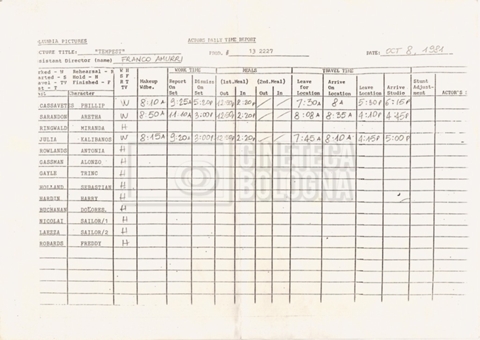 ACTORS DAILY TIME REPORT
CTURE TITLE: "TEMPEST" PROD. # 13 2227 DATE: OCT 8, 1981
sistant Director (name) FRANCO AMURRI
Worked - W Rehearsal - R
Hold - H
Travel - TV Finished - F
WORK TIME MEALS TRAVEL TIME
Character W H S F R T TV Makeup Wdbe. Report On Set Dismiss On Set (1st.Meal) Out In (2nd.Meal) Out In Leave for Location Arrive On Location Leave Location Arrive Studio Stunt Adjust-ment ACTOR'S
CASSAVETES PHILLIP W 8:10 A 9:25A 5:20P 2:20P 7:30A 8A 5:30P 6:15P
SARANDON ARETHA W 8:50 A 11:10A 3:00P 2:20P 8:08A 8:35A 4:10P 4:45P
RINGWALD MIRANDA H
JULIA KALIBANOS W 8:15A 9:20A 3:00P 2:20P 7:45A 8:10A 4:15P 5:00P
ROWLANDS ANTONIA H
GASSMAN ALONZO H
GAYLE TRINC H
HOLLARD SEBASTIAN H
HARDIN HARRY H
BUCHMAN DOLORES H
NICOLAI SAILOR/1 H
LAKESA SAILOR/2 H
ROBARDS FREDDY H
CINETECA
BOLOGNA